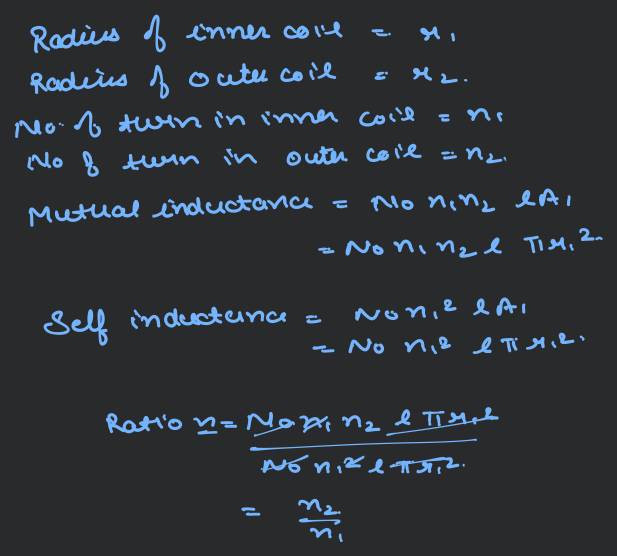 Radius of inner coil = r₁
Radius of outer coil = r₂.
No. of turn in inner coil = n₁
No of turn in outer coil = n₂.
Mutual inductance = μ₀ n₁n₂ l A₁
= μ₀ n₁ n₂ l π r₁².
Self inductance = μ₀ n₁² l A₁
= μ₀ n₁² l π r₁².
Ratio n = μ₀ n₁ n₂ l π r₁²
μ₀ n₁² l π r₁².
= n₂
n₁